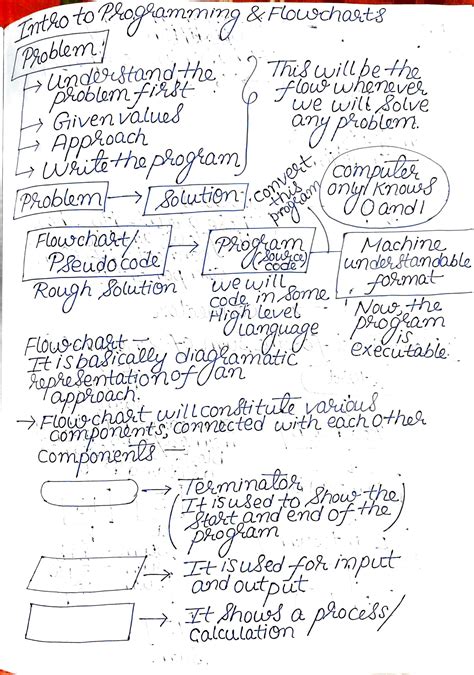 Intro to Programming & Flowcharts
Problem:
→ Understand the
problem first
→ Given values
→ Approach
→ Write the program
This will be the
flow whenever
we will solve
any problem.
Problem → Solution
convert
this
program
computer
only knows
0 and 1
Flowchart/
Pseudocode
Rough Solution
Program
(source
code)
we will
code in some
High level
language
Machine
understandable
format
Now, the
program
is
executable
Flowchart —
It is basically diagramatic
representation of an
approach.
→ Flowchart will constitute various
components, connected with each other
Components —
→ Terminator
(It is used to show the
start and end of the
program)
→ It is used for input
and output
→ It shows a process/
calculation